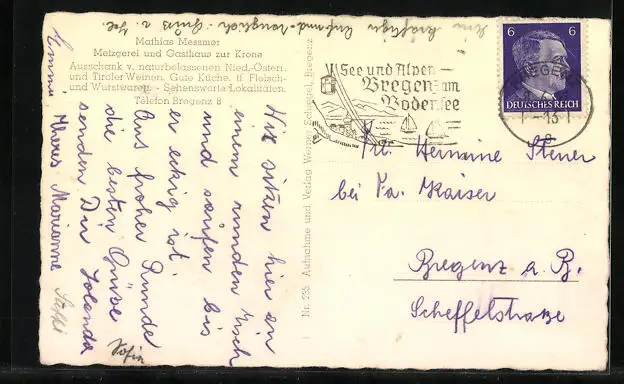 Mathias Messmer
Metzgerei und Gasthaus zur Krone
Ausschank v. naturbelassenen Nied.-Östern.
und Tiroler Weinen. Gute Küche. ff Fleisch-
und Wurstwaren - Sehenswerte Lokalitäten.
Telefon Bregenz 8
Wir sitzen hier an
einem runden Tisch
und saufen bis
er eckig ist.
Aus froher Runde
die besten Grüsse
senden Dir Jolanda
Marianne
Sofie
Emmi
Nr. 235 Aufnahme und Verlag Werner Bregenz
See und Alpen
Bregenz am
Bodensee
6 6
DEUTSCHES REICH
BREGENZ
Frl. Hermine Steuer
bei Fa. Kaiser
Bregenz a. B.
Scheffelstraße